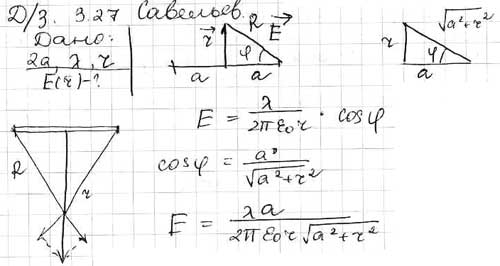 Д/З. 3.27 Савельев.
Дано:
2a, λ, r
E(r)-?
r R E
φ
a a
√a²+r²
r φ
a
E = λ / 2πε₀r · cosφ
cosφ = a / √a²+r²
E = λa / 2πε₀r√a²+r²
R r